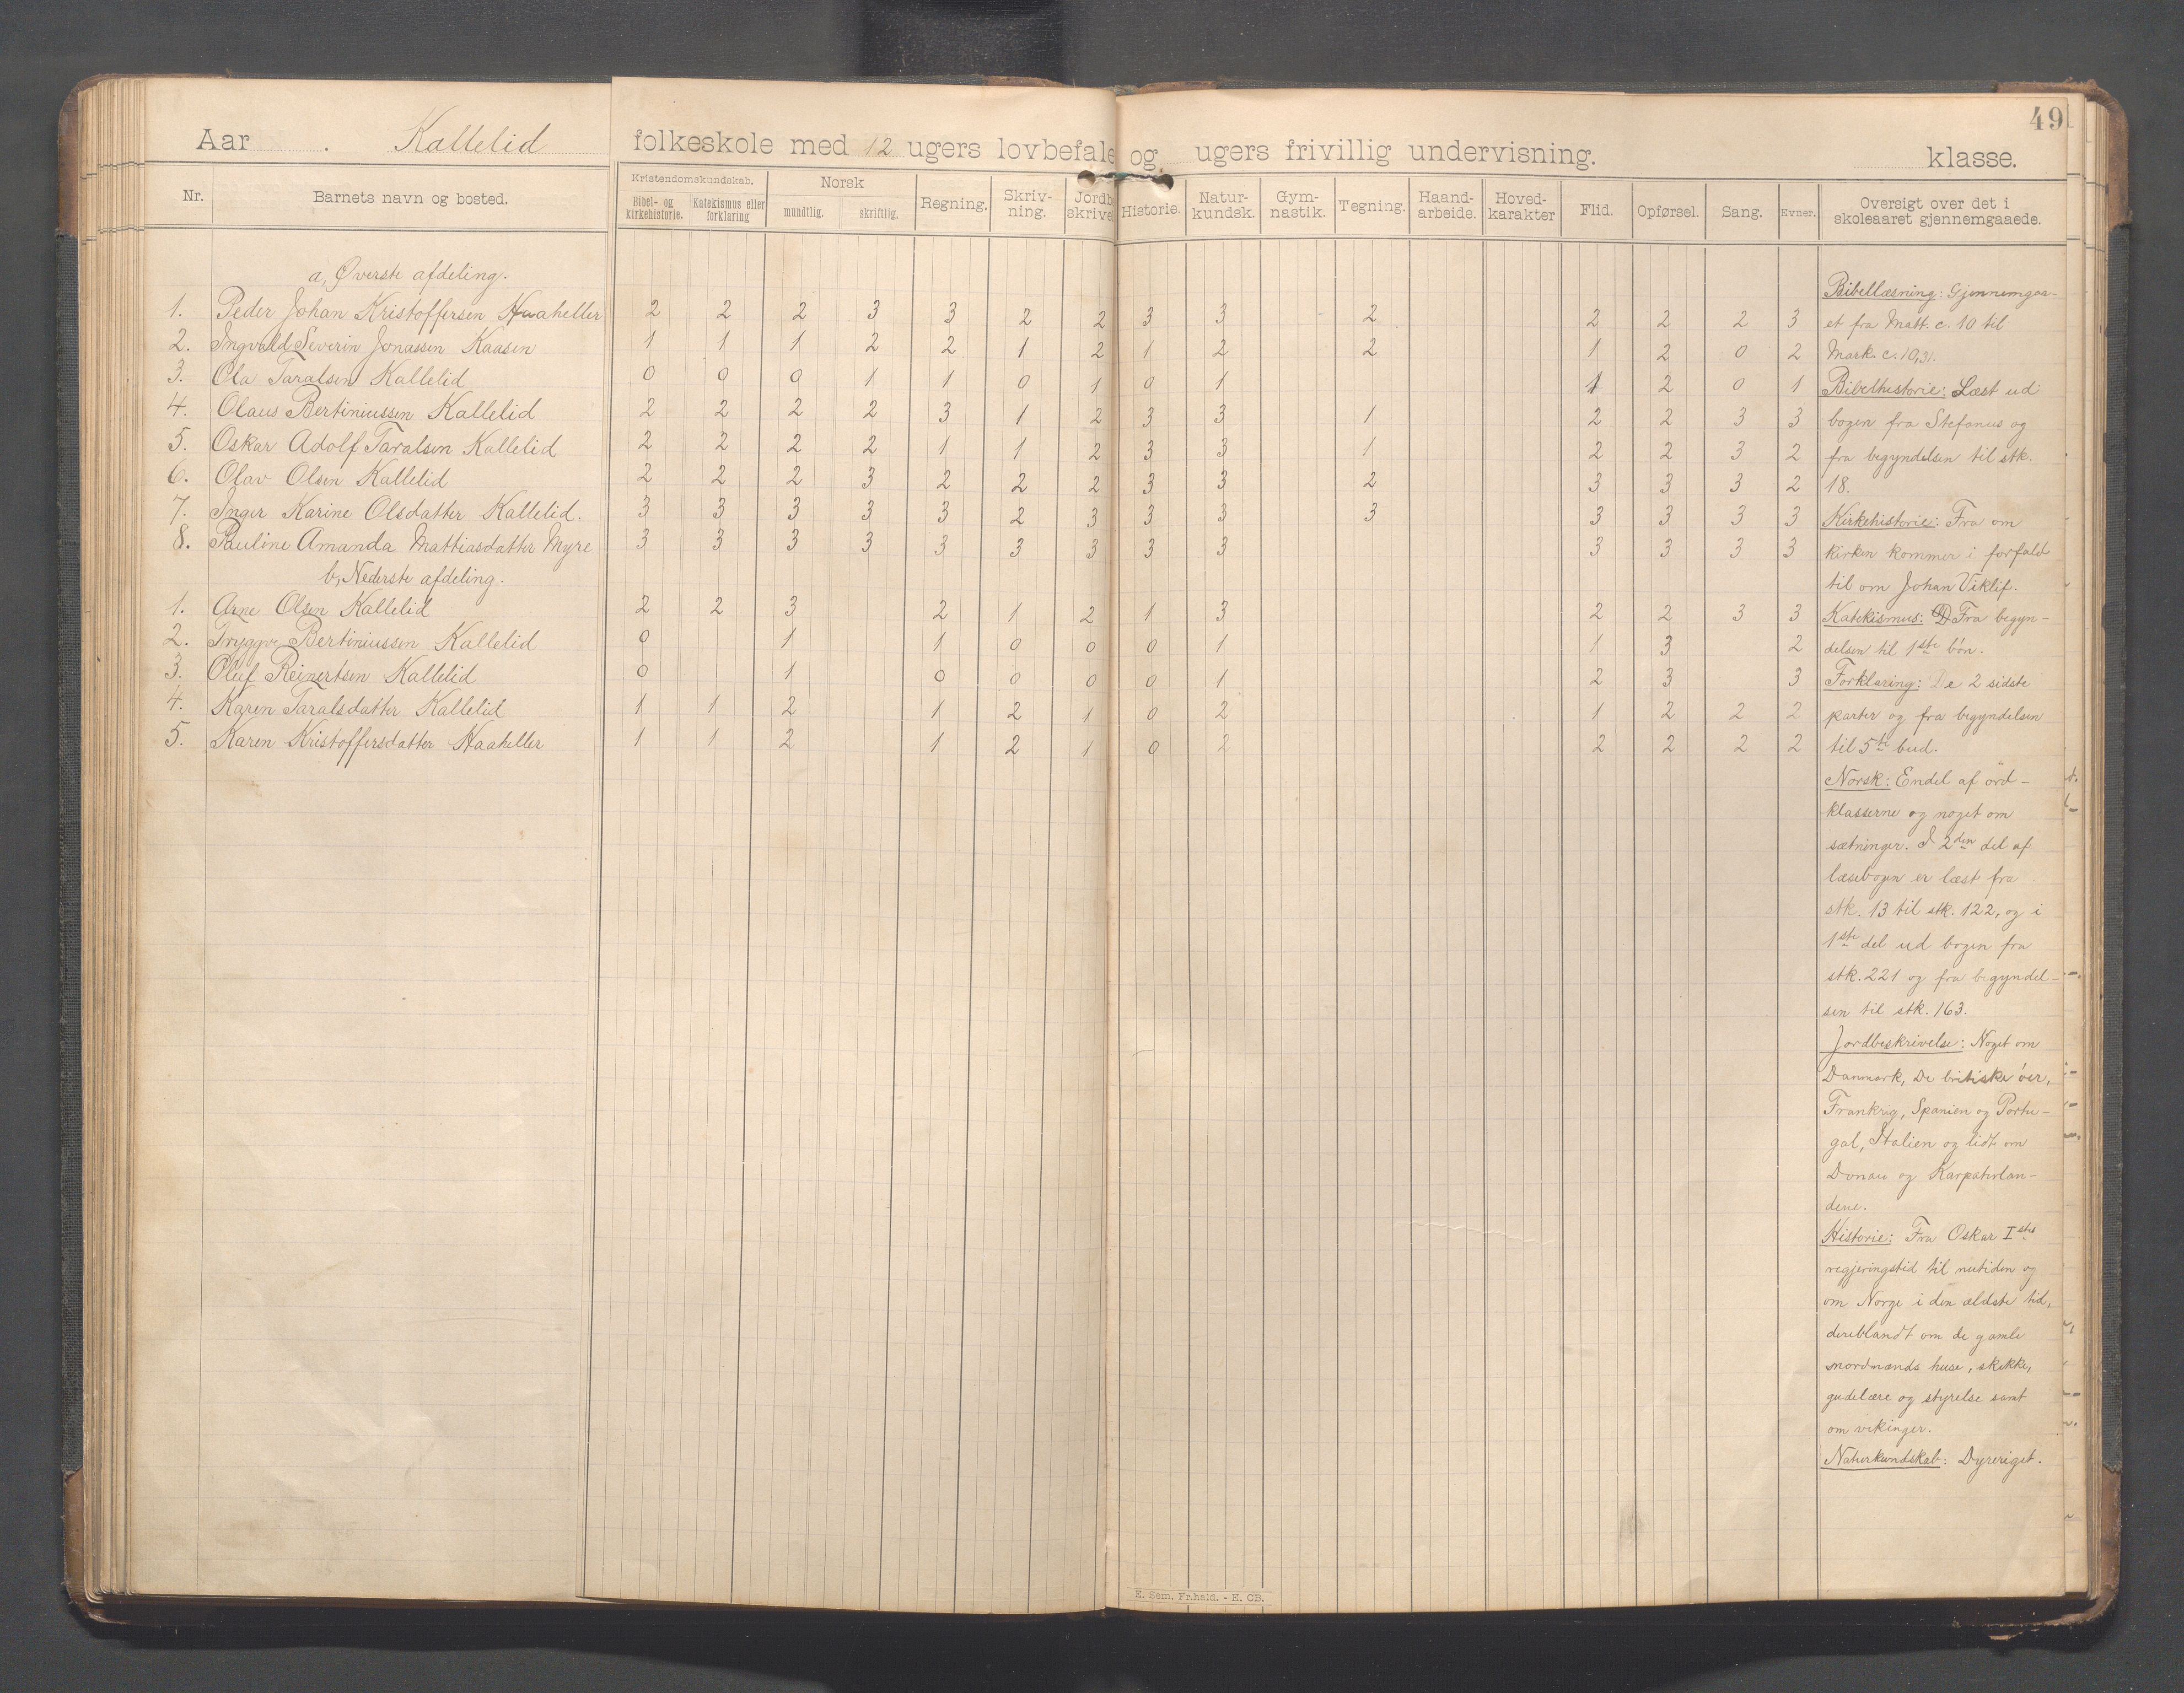 49
Aar . Kallelid folkeskole med 12 ugers lovbefale og ugers frivillig undervisning. klasse.
Nr. Barnets navn og bosted. Kristendomskundskab. Bibel- og kirkehistorie. Katekismus eller forklaring Norsk mundtlig. skriftlig. Regning. Skriv-ning. Jordb skrive Historie. Natur-kundsk. Gym-nastik. Tegning. Haand-arbeide. Hoved-karakter Flid. Opførsel. Sang. Evner. Oversigt over det i skoleaaret gjennemgaaede.
a, Øverste afdeling.
1. Peder Johan Kristoffersen Haaheller 2 2 2 3 3 2 2 3 3 2 2 2 2 3
2. Ingvald Severin Jonassen Kaasen 1 1 1 2 2 1 2 1 2 2 1 2 0 2
3. Ola Taralsen Kallelid 0 0 0 1 1 0 1 0 1 1 2 0 1
4. Olaus Bertiniussen Kallelid 2 2 2 2 3 1 2 3 3 1 2 2 3 3
5. Oskar Adolf Taralsen Kallelid 2 2 2 2 1 1 2 3 3 1 2 2 3 2
6. Olav Olsen Kallelid 2 2 2 3 2 2 2 3 3 2 3 3 3 2
7. Inger Karine Olsdatter Kallelid. 3 3 3 3 3 2 3 3 3 3 3 3 3 3
8. Pauline Amanda Mattiasdatter Myre 3 3 3 3 3 3 3 3 3 3 3 3 3
b, Nederste afdeling.
1. Arne Olsen Kallelid 2 2 3 2 1 2 1 3 2 2 3 3
2. Tryggve Bertiniussen Kallelid 0 1 1 0 0 0 1 1 3 2
3. Oluf Reinertsen Kallelid 0 1 0 0 0 0 1 2 3 3
4. Karen Taralsdatter Kallelid 1 1 2 1 2 1 0 2 1 2 2 2
5. Karen Kristoffersdatter Haaheller 1 1 2 1 2 1 0 2 2 2 2 2
Bibellæsning: Gjennemgaa-
et fra Matt. c. 10 til
Mark. c. 10,31.
Bibelhistorie: Læst ud
bogen fra Stefanus og
fra begyndelsen til stk.
18.
Kirkehistorie: Fra om
kirken kommer i forfald
til om Johan Viklif.
Katekismus: Fra begyn-
delsen til 1ste bön.
Forklaring: De 2 sidste
parter og fra begyndelsen
til 5te bud.
Norsk: Endel af ord-
klasserne og noget om
sætninger. I 2den del af
læsebogen er læst fra
stk. 13 til stk. 122, og i
1ste del ud bogen fra
stk. 221 og fra begyndel-
sen til stk. 163.
Jordbeskrivelse: Noget om
Danmark, De britiske öer,
Frankrig, Spanien og Portu-
gal, Italien og lidt om
Donau og Karpaterlan-
dene.
Historie: Fra Oskar Istes
regjeringstid til nutiden og
om Norge i den ældste tid,
deriblandt om de gamle
nordmænds huse, skikke,
gudelære og styrelse samt
om vikinger.
Naturkundskab: Dyreriget.
E. Sem, Fr.hald. - E. CB.